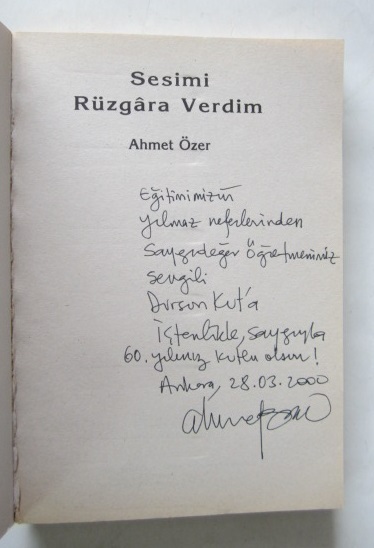 Sesimi
Rüzgâra Verdim
Ahmet Özer
Eğitimimizin
yılmaz neferlerinden
Saygıdeğer Öğretmenimiz
sevgili
Dursun Kut'a
içtenlikle, saygıyla
60. yılınız kutlu olsun!
Ankara, 28.03.2000